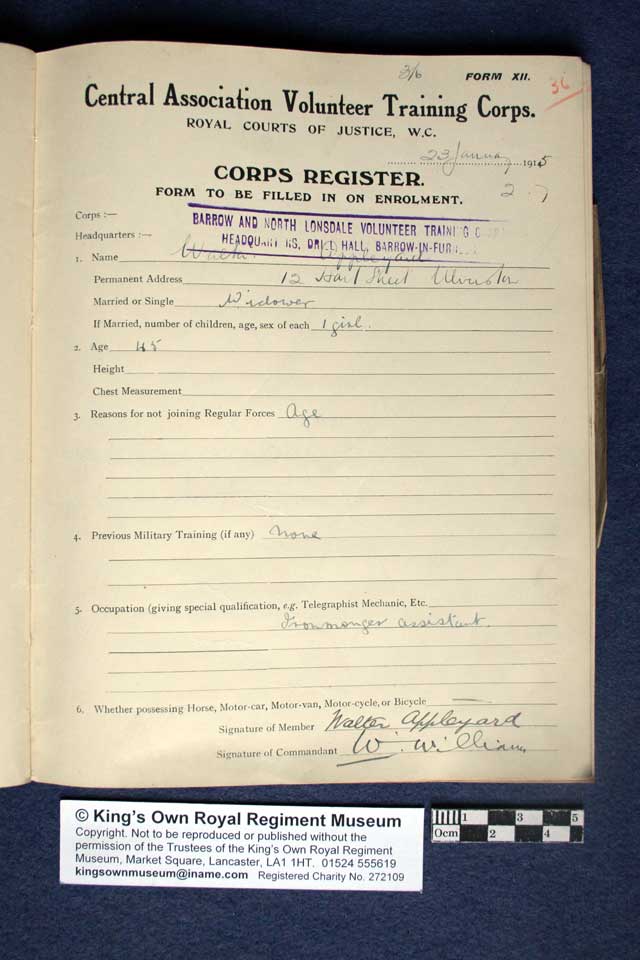 3/6 FORM XII. 36
Central Association Volunteer Training Corps.
ROYAL COURTS OF JUSTICE, W.C.
23 January 1915
CORPS REGISTER. 2.7
FORM TO BE FILLED IN ON ENROLMENT.
Corps :—
BARROW AND NORTH LONSDALE VOLUNTEER TRAINING
Headquarters :— HEADQUARTERS, DRILL HALL, BARROW-IN-FUR
1. Name Walter Appleyard
Permanent Address 12 Hart Street Ulverston
Married or Single Widower
If Married, number of children, age, sex of each 1 girl.
2. Age 45
Height
Chest Measurement
3. Reasons for not joining Regular Forces Age
4. Previous Military Training (if any) None
5. Occupation (giving special qualification, e.g. Telegraphist Mechanic, Etc.
Ironmonger assistant.
6. Whether possessing Horse, Motor-car, Motor-van, Motor-cycle, or Bicycle —
Signature of Member Walter Appleyard
Signature of Commandant W. Williams
© King's Own Royal Regiment Museum
Copyright. Not to be reproduced or published without the
permission of the Trustees of the King's Own Royal Regiment
Museum, Market Square, Lancaster, LA1 1HT. 01524 555619
kingsownmuseum@iname.com Registered Charity No. 272109
1 3 5
0cm 2 4